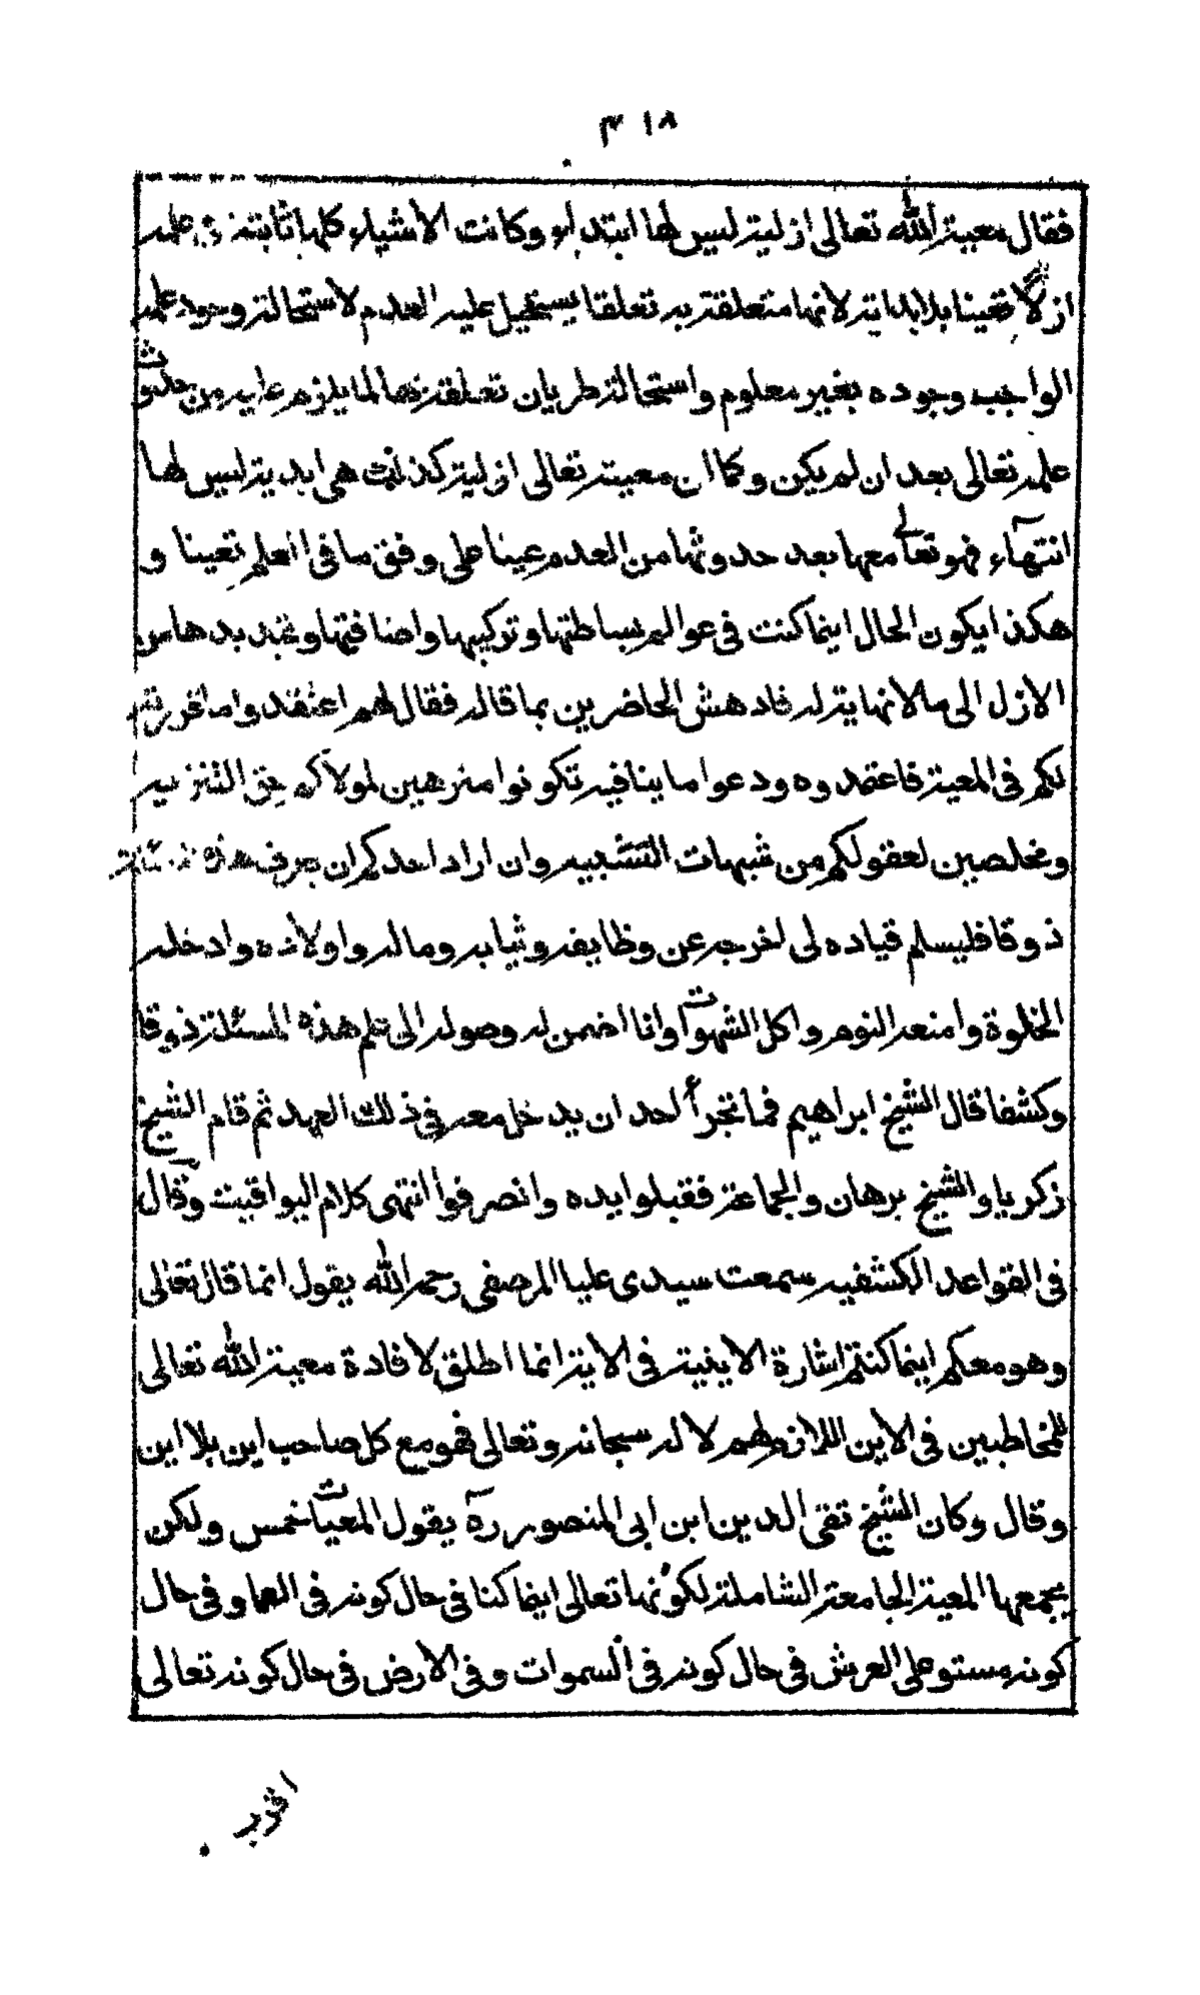 ٣١٨
فقال معية الله تعالى ازلية ليس لها ابتداء وكانت الاشياء كلها ثابتة في علمه
ازلا تعينا بلا بداية لانها متعلقة به تعلقا يستحيل عليه العدم لاستحالة وجود علمه
الواجب وجوده بغير معلوم واستحالة طريان تعلقه بها لما يلزم عليه من حدوث
علمه تعالى بعد ان لم يكن وكما ان معيته تعالى ازلية كذلك هي ابدية ليس لها
انتهاء فهو تعالى معها بعد حدوثها من العدم عينا على وفق ما في العلم تعينا و
هكذا يكون الحال اينما كنت في عوالم بساطتها وتركيبها واضافتها وتجريدها من
الازل الى ما لا نهاية له فادهش الحاضرين بما قاله فقال لهم اعتقدوا ما قررته
لكم في المعية فاعتمدوه ودعوا ما ينافيه تكونوا منزهين لمولاكم حق التنزيه
ومخلصين لعقولكم من شبهات التشبيه وان اراد احدكم ان يعرف هذه المسئلة
ذوقا فليسلم قياده لي اخرجه عن وظايفه وثيابه وماله واولاده وادخله
الخلوة وامنعه النوم واكل الشهوات وانا اضمن له وصوله الى علم هذه المسئلة ذوقا
وكشفا قال الشيخ ابراهيم فما تجرأ احد ان يدخل معه في ذلك العهد ثم قام الشيخ
زكريا والشيخ برهان والجماعة فقبلوا يده وانصرفوا انتهى كلام اليواقيت وقال
في القواعد الكشفيه سمعت سيدى عليا المرصفي رحمه الله يقول انما قال تعالى
وهو معكم اينما كنتم اشارة الاينية في الاية انما اطلق لافادة معية الله تعالى
للمخاطبين في الاين اللازم لهم لا له سبحانه وتعالى فهو مع كل صاحب اين بلا اين
وقال وكان الشيخ تقى الدين ابن ابى المنصور ره يقول المعيات خمس ولكن
يجمعها المعية الجامعة الشاملة لكونها تعالى اينما كنا في حال كونه في العما وفي حال
كونه مستو على العرش في حال كونه في السموات وفي الارض في حال كونه تعالى
اقرب